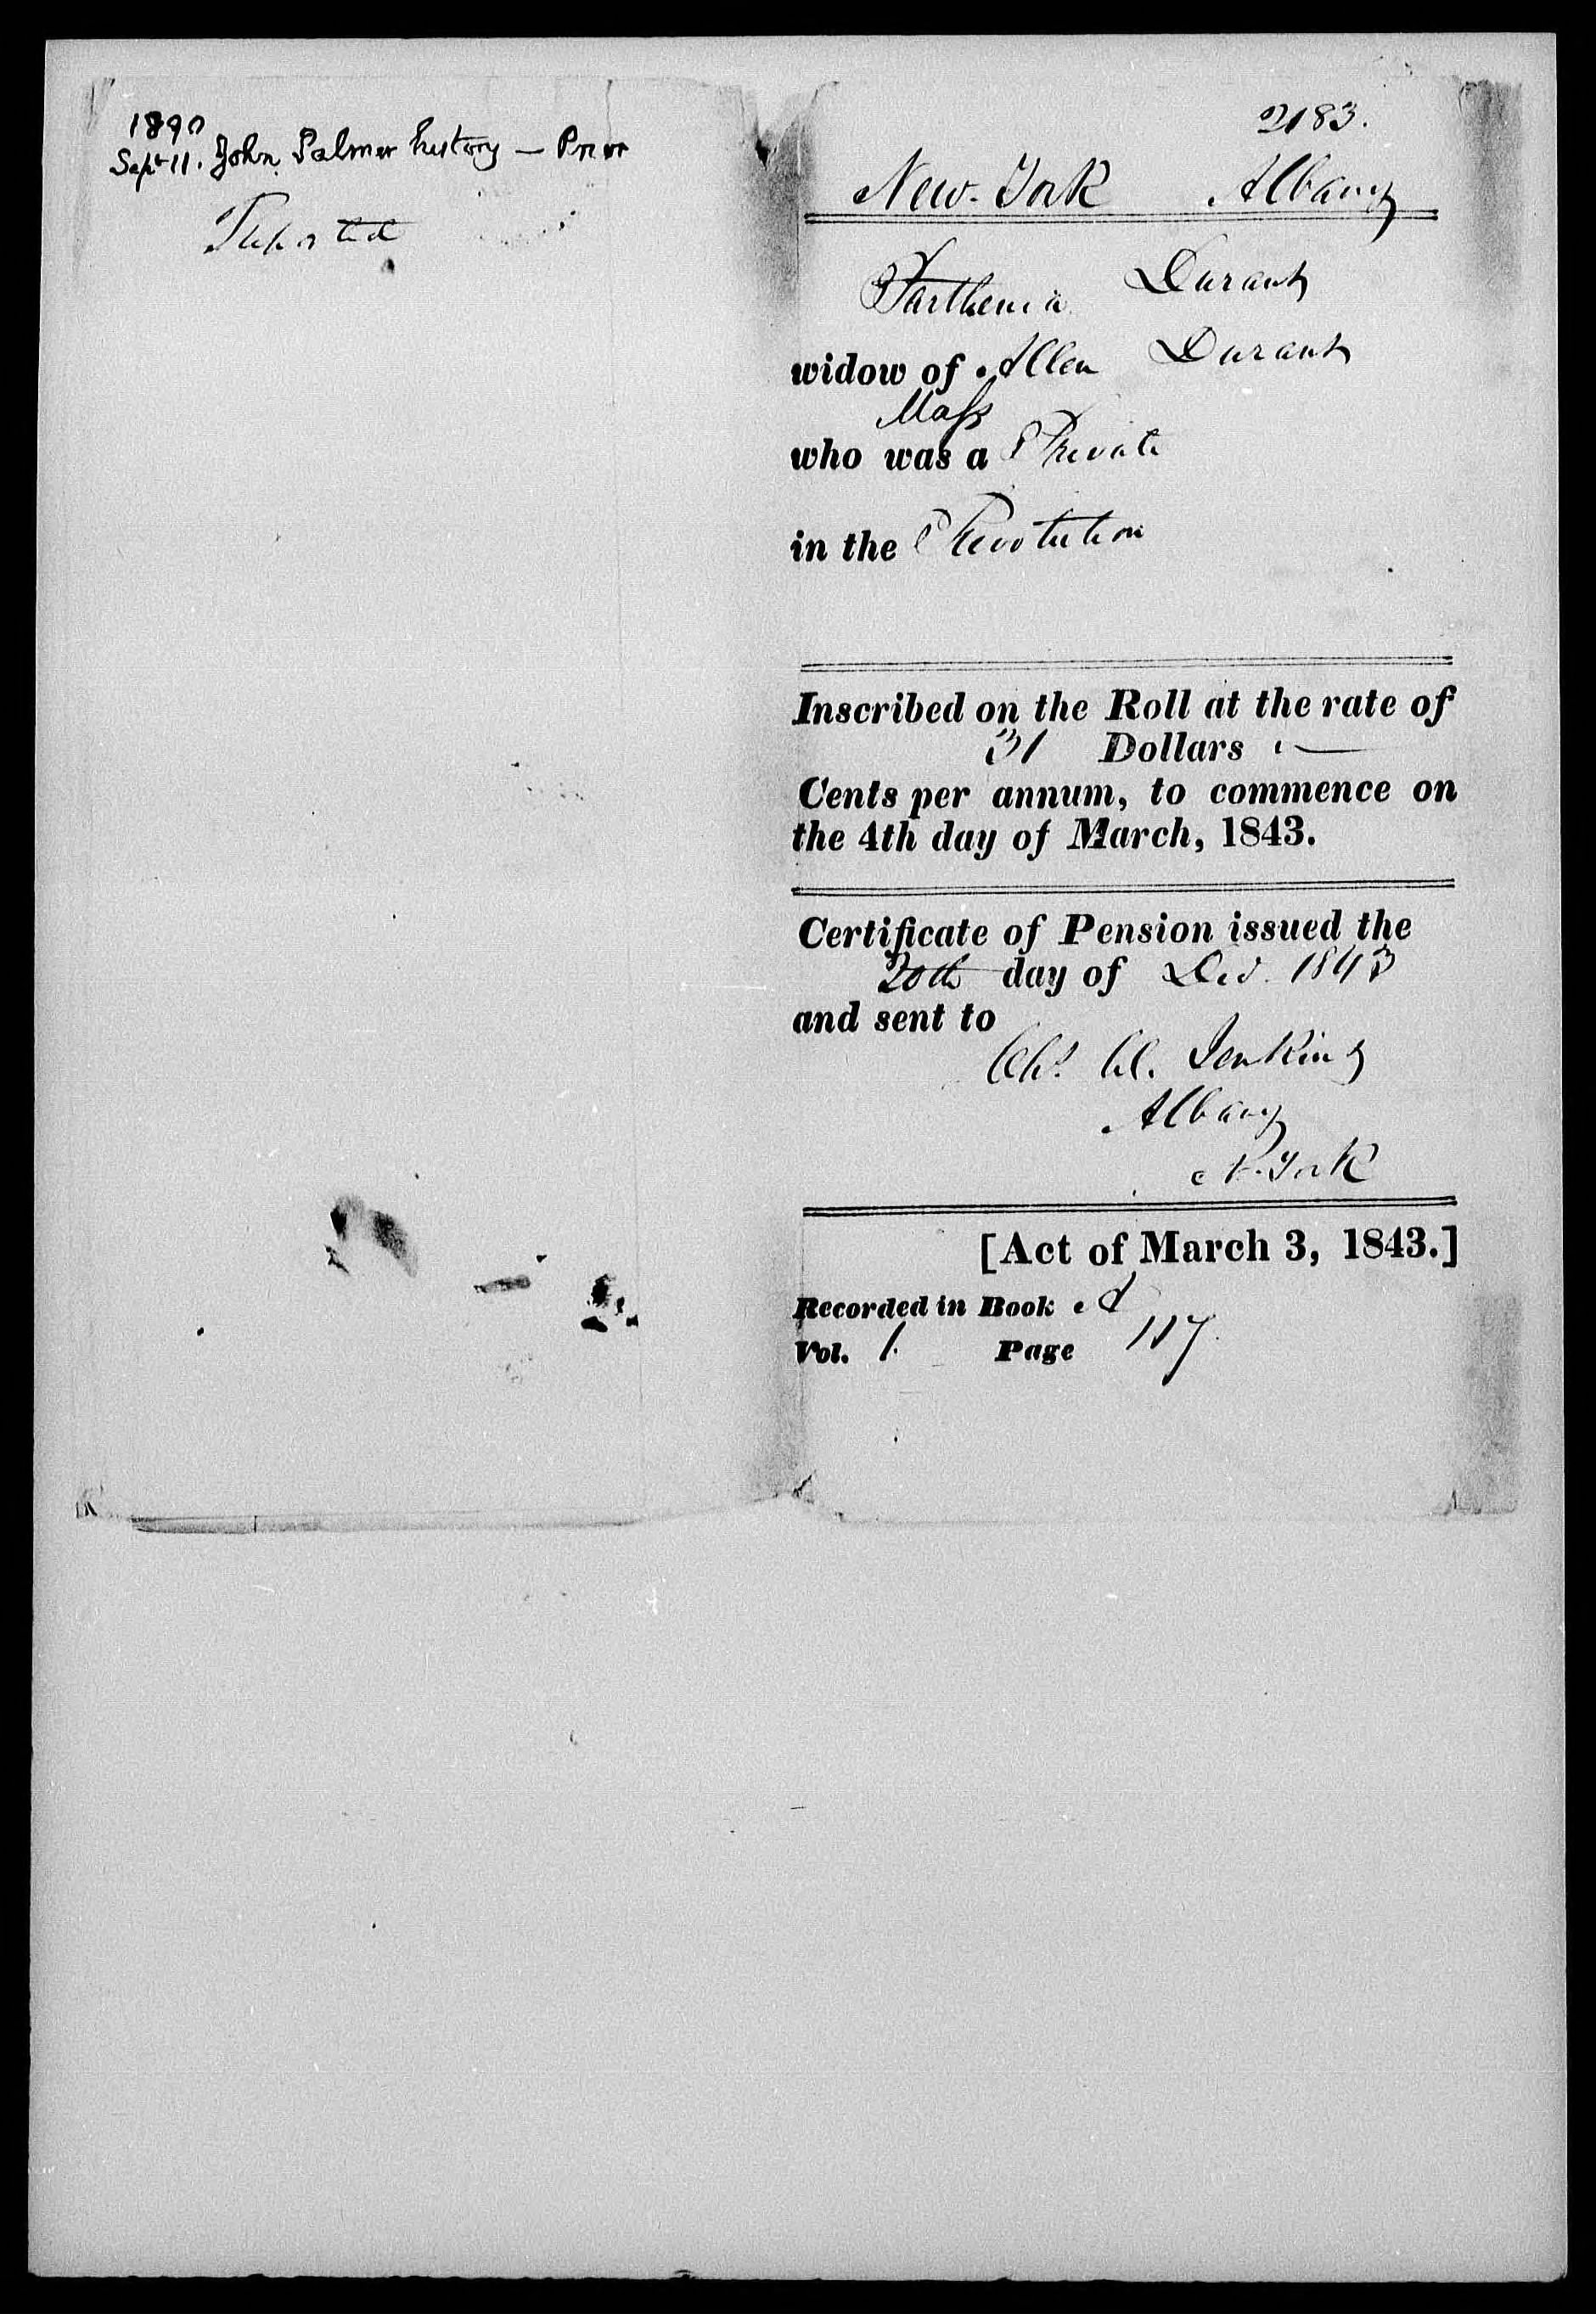 1890
Sept 11. John Palmer history —
2183.
New-York Albany
Parthenia Durant
widow of Allen Durant
Mass
who was a Private
in the Revolution
Inscribed on the Roll at the rate of
31 Dollars —
Cents per annum, to commence on
the 4th day of March, 1843.
Certificate of Pension issued the
20th day of Dec. 1843
and sent to
Chs. Jenkins
Albany
N. York
[Act of March 3, 1843.]
Recorded in Book A
Vol. 1. Page 117